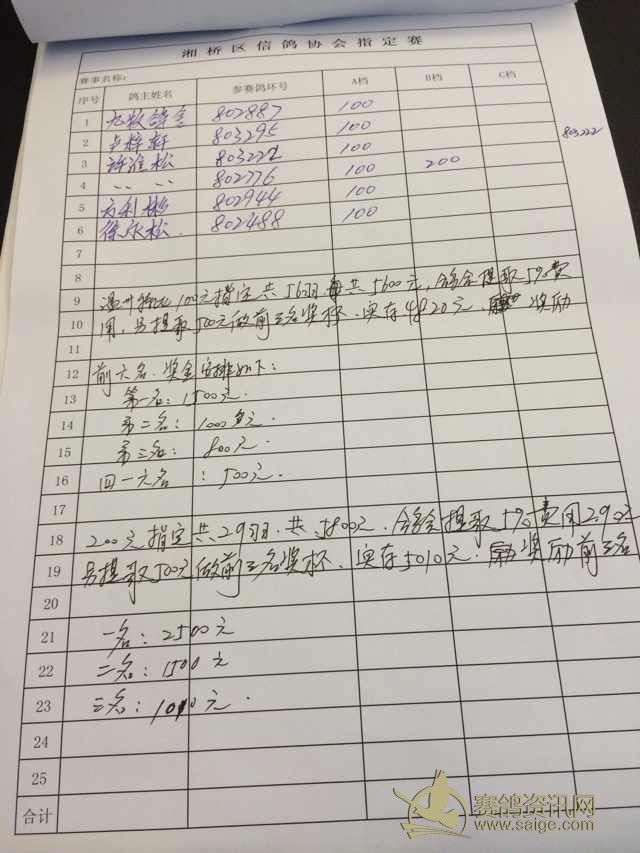 湘桥区信鸽协会指定赛
赛事名称:
序号 鸽主姓名 参赛鸽环号 A档 B档 C档
1 802887 100
2 卢梓轩 803295 100
3 许淮松 803222 100 803222
4 〃 〃 802776 100 200
5 方利彬 802944 100
6 徐永松. 802488 100
7
8
9 温州 100元指定共56羽 共5600元,合 会提取5%费
10 用,另提取500元做前三名奖杯.实存4820元. 奖励
11
12 前六名.奖金安排如下:
13 第一名:1500元.
14 第二名:1000元
15 第三名:800元.
16 四一六名 :500元.
17
18 200元指定共29羽.共5800元. 会提取5%费用290元
19 另提取500元做前三名奖杯.实存5010元. 奖励前三名
20
21 一名:2500元
22 二名:1500元
23 三名:1010元.
24
25
合计
赛鸽资讯网
www.saige.com